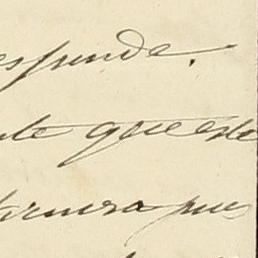 esponde.
nte que este
ternura pues